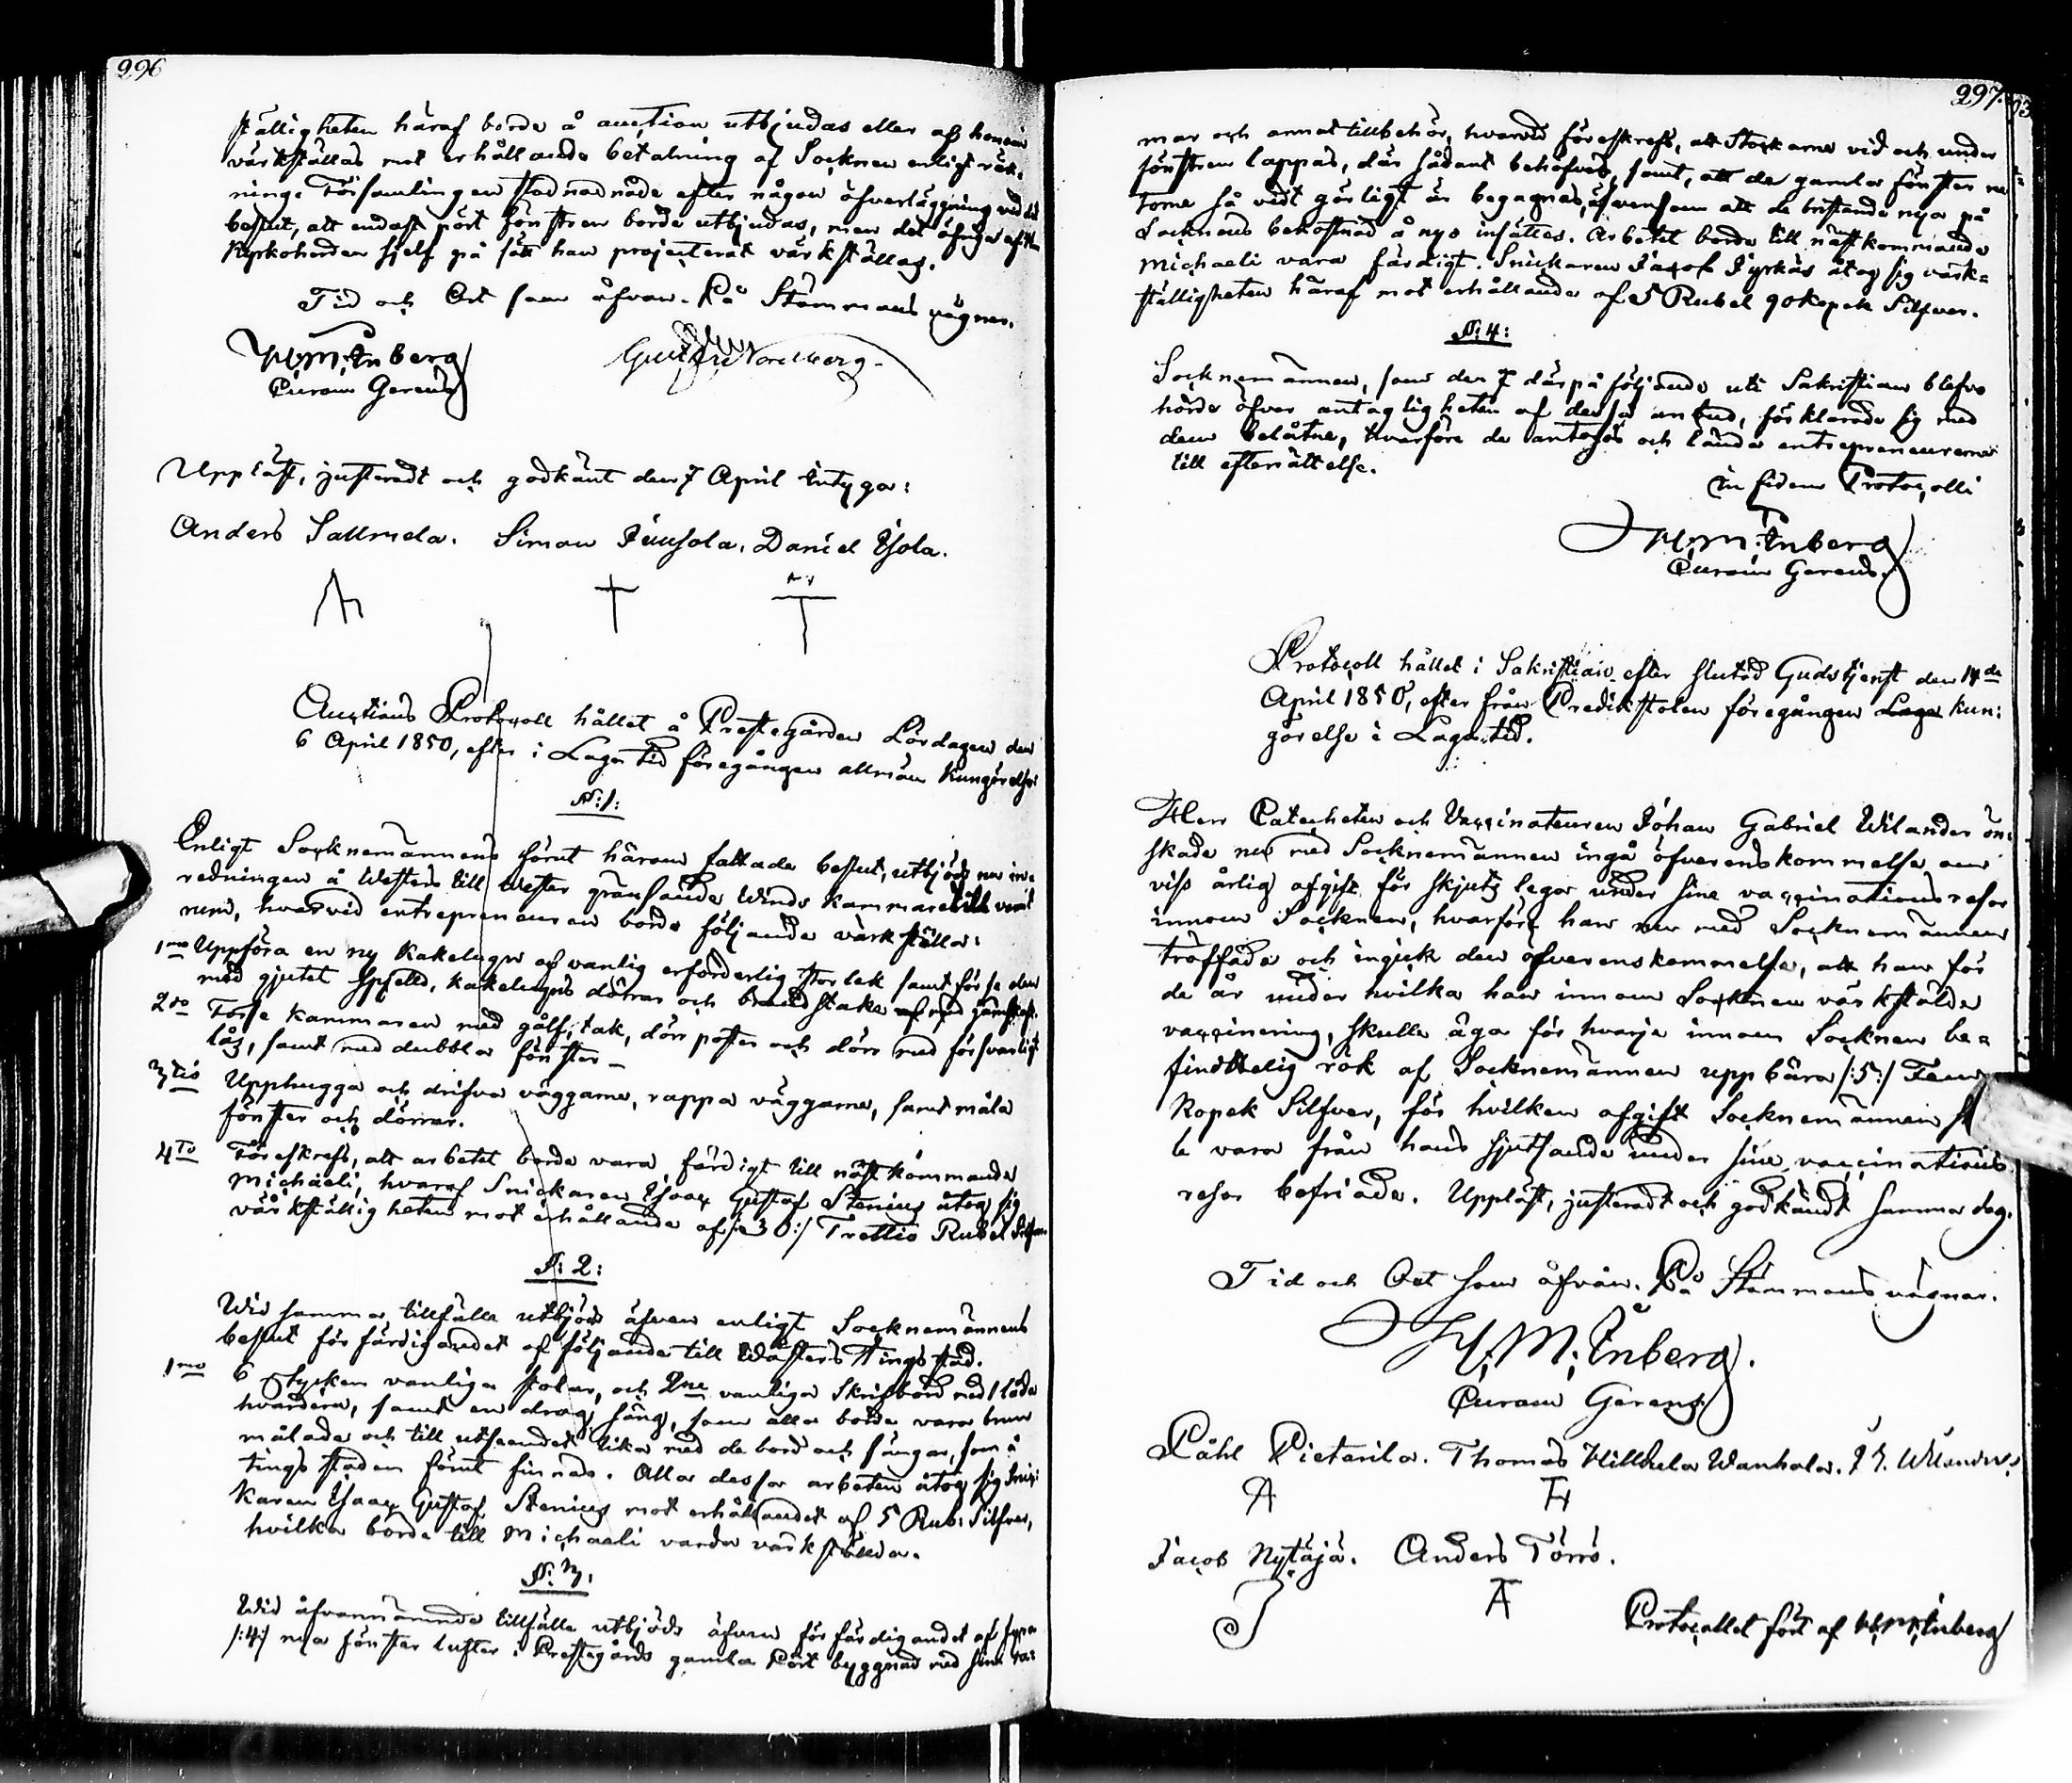 296
ställigheten häraf borde å auction utbjudas eller ock honom
värkställas mot erhållande betalning af Socknen enligt räk-
ning. Församlingen stadnade efter någon öfverläggning vid det
beslut, att endast pört fönstren borde utbjudas, men det öfriga af
Kyrkoherden sjelf på sätt han projecterat värkställas.
Tid och Ort som åfvan. På Stämmans vägnar.
H: M: Enberg
Curam Gerens
Gustav Nordberg.
Uppläst, justeradt och godkänt den 7 April intyga:
Anders Sallmela. Simon Juusola. Daniel Isola.
Auctions Protocoll hållet å Prestegården Lördagen den
6 April 1850, efter i Laga tid föregången allmän kungörelse
N: 1:
Enligt Socknemännens förut härom fattade beslut, utbjöds nu in-
redningen å Westers till Wester gränsande Winds kammare till
rum, hvarvid entrepreneuren borde följande värkställa:
1mo Uppföra en ny Kakelugn af vanlig erforderlig storlek samt förse den
med gjutet spjell, kakelugns dörrar och
2do Förse kammaren med gålf, tak, dörr poster och dörr med försvarligt
lås, samt med dubbla fönster –
3tio Upphugga och drifva väggarne, rappa väggarne, samt måla
fönster och dörrar.
4to Föreskrefs, att arbetet borde vara färdigt till nästkommande
Michaeli, hvaraf Snickaren Isaac Gustaf Stenius åtog sig
värkställigheten mot erhållande af /: 30 :/ Trettio Rubel Silfver.
N: 2:
Wid samma tillfälle utbjöds äfven enligt Socknemännens
beslut för färdigandet af följande till Westers Tingsstad.
1mo 6 stycken vanliga stolar, och 2ne vanliga Skrifbord med 1 låda
hvardera, samt en drag säng, som alla borde vara brun
målade och till utseendet lika med de bord och sängar, som å
tingsstaden förut finnas. Alla dessa arbeten åtog sig Snic-
karen Isaac Gustaf Stenius mot erhållandet af 5 Rub: Silfver,
hvilka borde till Michaeli varda värkställda.
N: 3:
Wid åfvannämnde tillfälle utbjöds äfven för färdigandet af fyra
/:4:/ nya fönster lufter i Prestegårds gamla Pört byggnad med sine ra-
297.
mar och annat tillbehör, hvarvid föreskrefs, att Stockarne vid och under
fönstren lappas, där sådant behöfves, samt, att de gamla fönster ru-
torne så vidt görligt är begagnas, äfvensom att de bristande nya på
Socknens bekostnad å nyo insättes. Arbetet borde till nästkommande
Michaeli vara färdigt. Snickaren Jacob Jyrkäs åtog sig värk-
ställigheten häraf mot erhållande af 5 Rubel 90 kopek Silfver.
N: 4:
Socknemännen, som den 7 därpå följande uti Sakristian blefvo
hörde öfver antagligheten af dessa anbud, förklarade sig med
dem belåtne, hvarföre de antogos och lände entrepreneurerne
till efterrättelse.
in fidem Protocolli
H: M: Enberg
Curam Gerens.
Protocoll hållet i Sakristian efter slutad Gudstjenst den 14de
April 1850, efter från Predikstolen föregången Laga kun-
görelse i Laga tid.
Herr Catecheten och Vaccinateuren Johan Gabriel Wilander ön-
skade nu med Socknemännen ingå öfverenskommelse om
viss årlig afgift för skjutz legor under sine vaccinations resor
innom Socknen, hvarföre han nu med Socknemännen
träffade och ingick den öfverenskommelse, att han för
de år under hvilka han innom Socknen värkstälde
vaccinering, skulle äga för hvarje innom Socknen be-
findttelig rök af Socknemännen uppbära /:5:/ Fem
Kopek Silfver, för hvilken afgift Socknemännen
le vara från hans skjutsande under sine vaccinations
resor befriade. Uppläst, justeradt och godkändt samma dag.
Tid och Ort som åfvan. På Stämmans vägnar.
H: M: Enberg.
Curam Gerens
Påhl Pietarila. Thomas Hillhela Wanhala. J G. Wilander.
Jacob Nytäjä. Anders Törrö.
Protocollet fört af H: M: Enberg